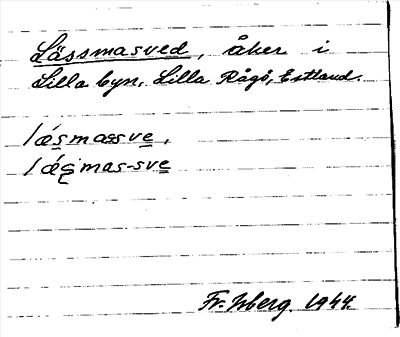 Lässmasved, åker i
Lilla byn, Lilla Rågö, Estland.
lǽsmassve,
lǽςmas-sve
Fr. Isberg 1944.